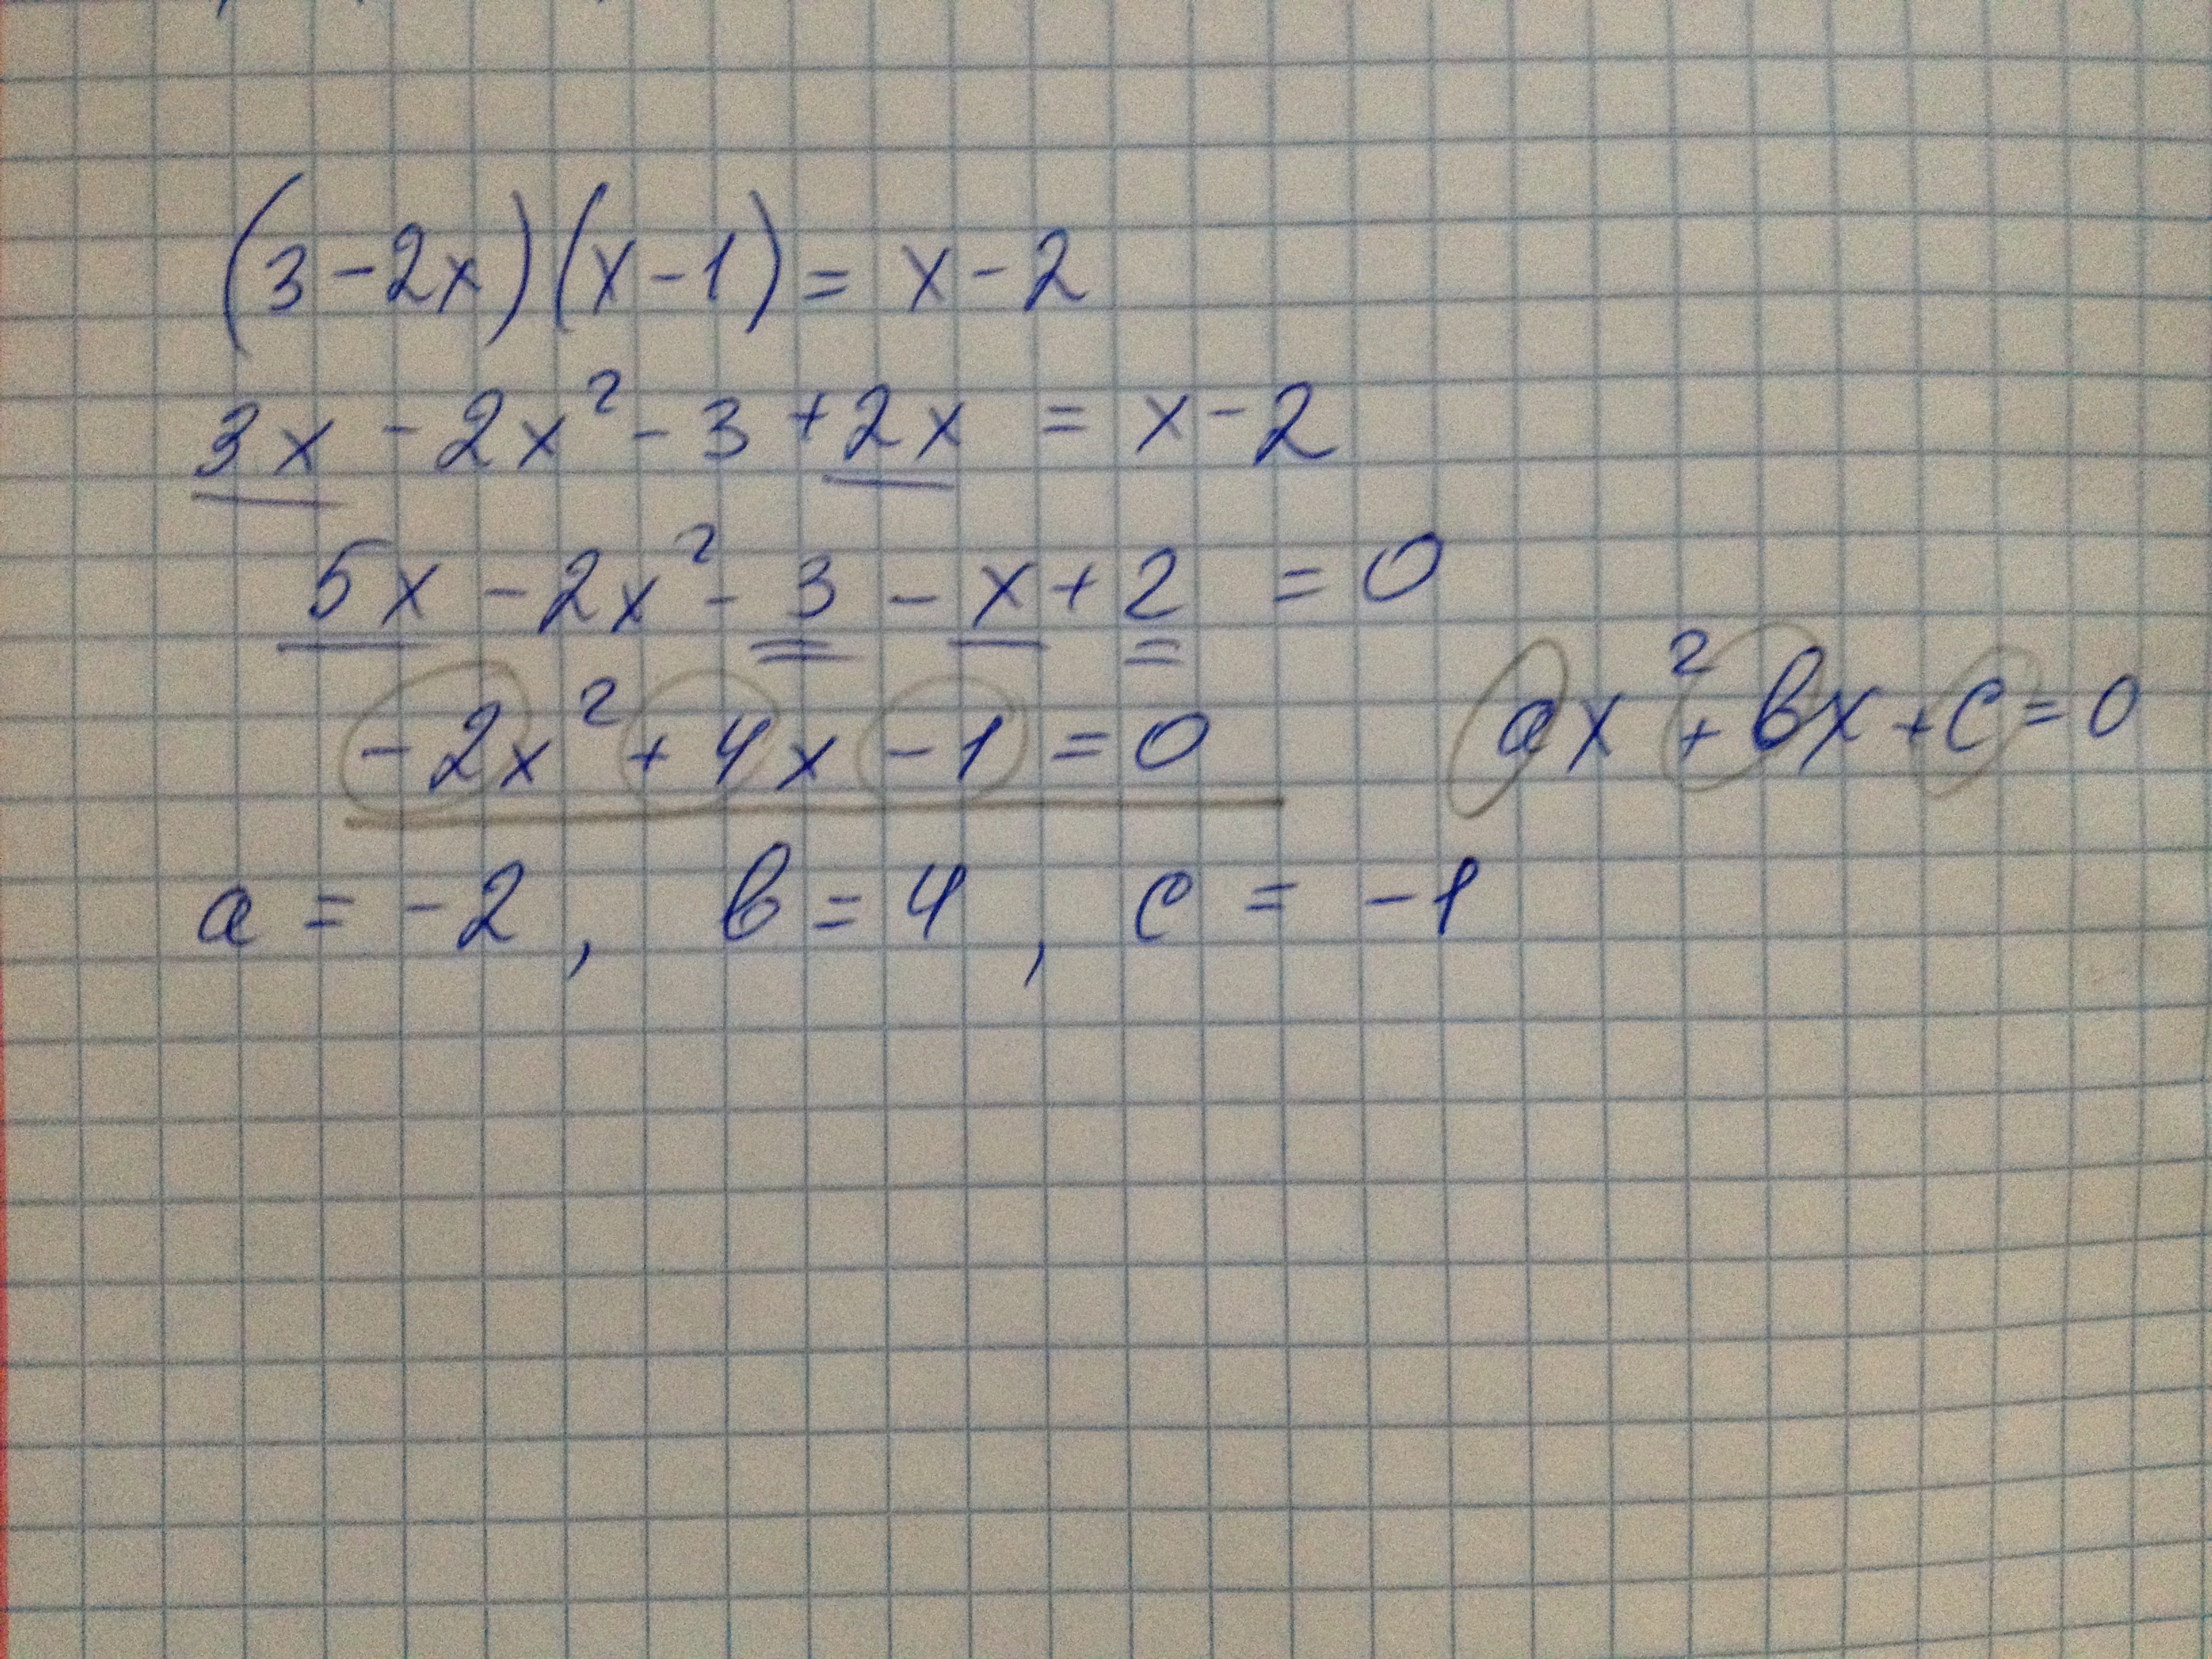 (3-2x)(x-1)=x-2
3x-2x²-3+2x=x-2
5x-2x²-3-x+2=0
-2x²+4x-1=0
ax²+bx+c=0
a=-2, b=4, c=-1